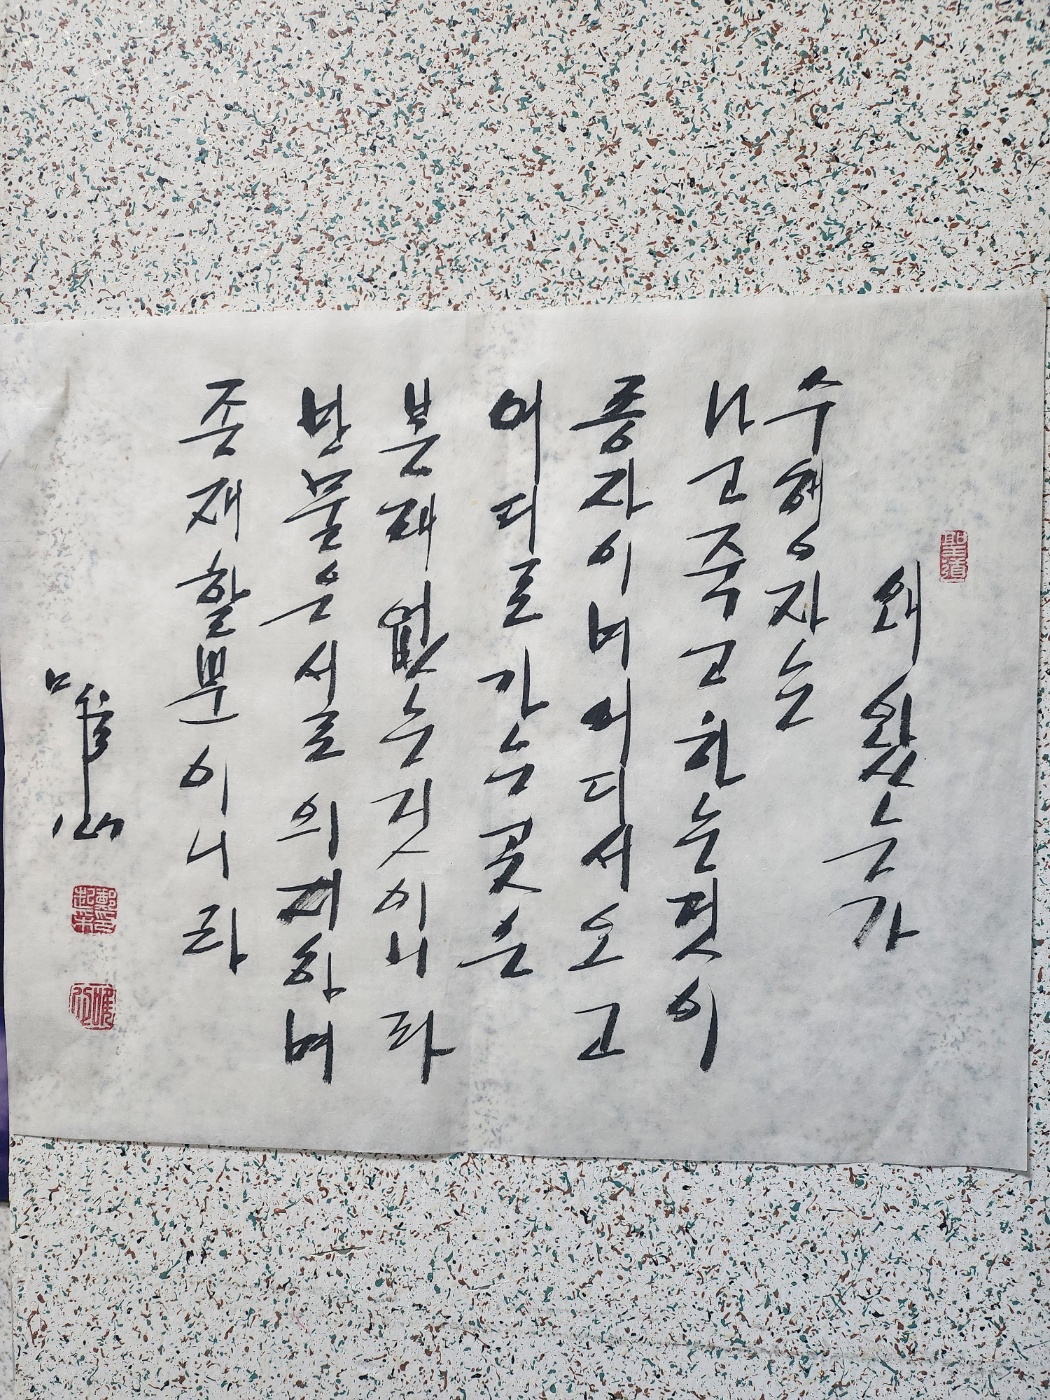 聖道
왜 왔는가
수행자는
나고 죽고 하는 것이
종자이며 어디서 오고
어디로 가는 곳은
본래 없는 것이니라
만물은 서로 의지하며
존재할 뿐이니라